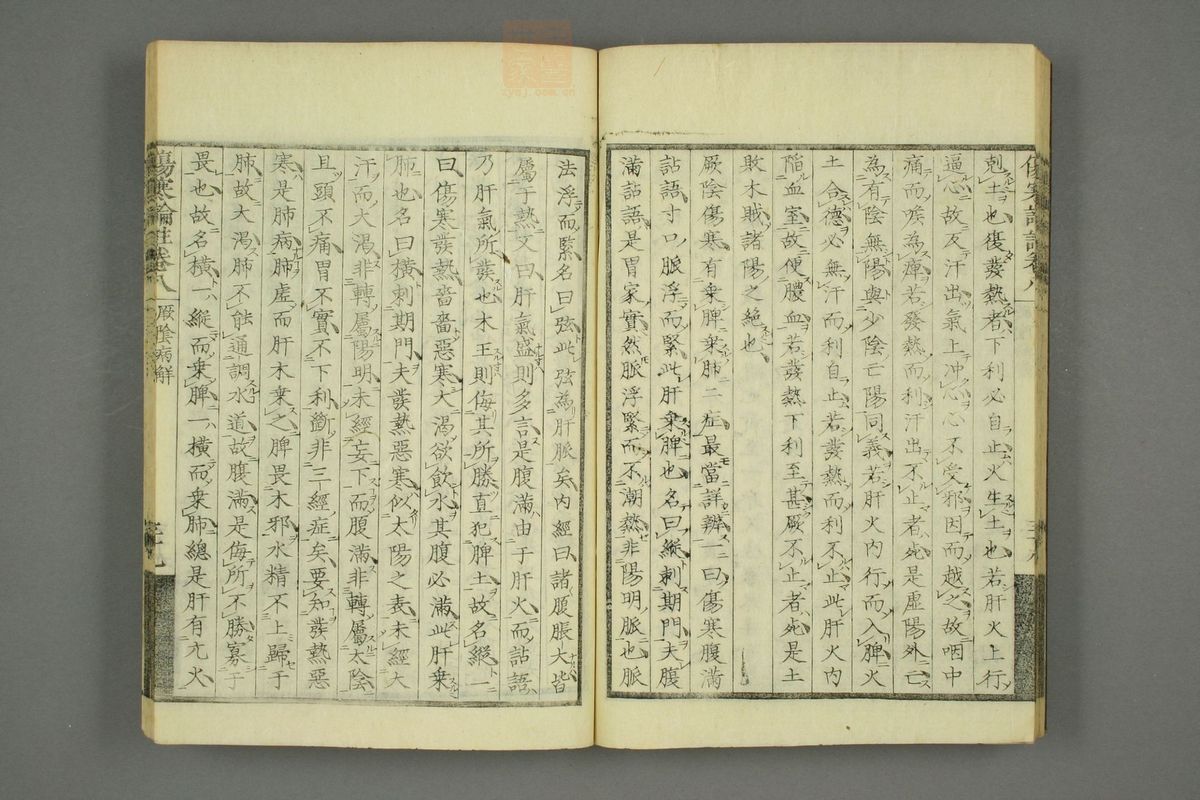 剋土也復發熱者下利必自止火生土也若肝火上行
逼心故反汗出氣上冲心心不受邪因而越之故咽中
痛而喉為痺若發熱而利汗出不止者死是虛陽外亡
為有陰無陽與少陰亡陽同義若肝火內行而入脾火
土合德必無汗而利自止若發熱而利不止此肝火內
陷血室故便膿血若發熱下利至甚厥不止者死是土
敗木賊諸陽之絶也
厥陰傷寒有乗脾乗肺二症最當詳辨一曰傷寒腹滿
詀語寸口脈浮而緊此肝乗脾也名曰縱刺期門夫腹
滿詀語是胃家實然脈浮緊而不潮熱非陽明脈也脈
法浮而緊名曰弦此弦為肝脈矣內經曰諸腹脹大皆
屬于熱又曰肝氣盛則多言是腹滿由于肝火而詀語
乃肝氣所發也木王則侮其所勝直犯脾土故名縱一
曰傷寒發熱嗇嗇惡寒大渴欲飲水其腹必滿此肝乗
肺也名曰橫刺期門夫發熱惡寒似太陽之表未經大
汗而大渴非轉屬陽明未經妄下而腹滿非轉屬太陰
且頭不痛胃不實不下利斷非三經症矣要知發熱惡
寒是肺病肺虛而肝木乗之脾畏木邪水精不上歸于
肺故大渴肺不能通調水道故腹滿是侮所不勝寡于
畏也故名橫一縱而乗脾一橫而乗肺總是肝有亢火
傷寒論註卷八
厥陰病解
三十九